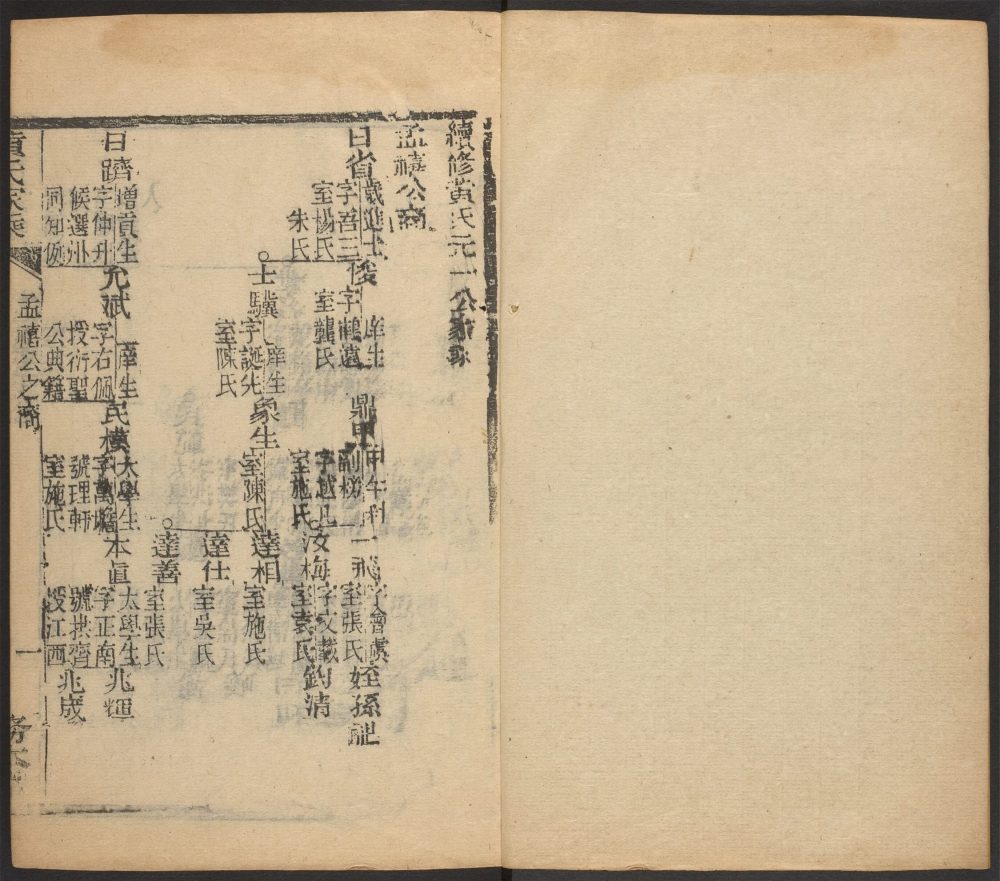 續修黃氏元一公家乘
孟禧公裔
日省
歲進士
字吾三
室楊氏
朱氏
俊
庠生
字鶴遠
室龔氏
鼎甲
甲午科
副榜
字越凡
室施氏
一飛
字會虞
室張氏
姪孫祉
汝梅
字文載
室袁氏
鈞清
士驥
庠生
字誕先
室陳氏
象生
室陳氏
達相
室施氏
達仕
室吳氏
達善
室張氏
日躋
增貢生
字仲升
候選州
同知例
允斌
庠生
字右佩
授衍聖
公典籍
民樸
太學生
字萬
號理軒
室施氏
本真
太學生
字正南
號拱齊
授江西
兆輝
兆成
黃氏家乘
孟禧公之裔
一